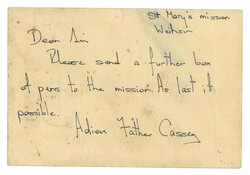 St Mary's mission
Dear Sir
Please send a further box
of pens to the mission. As last if
possible.
Father